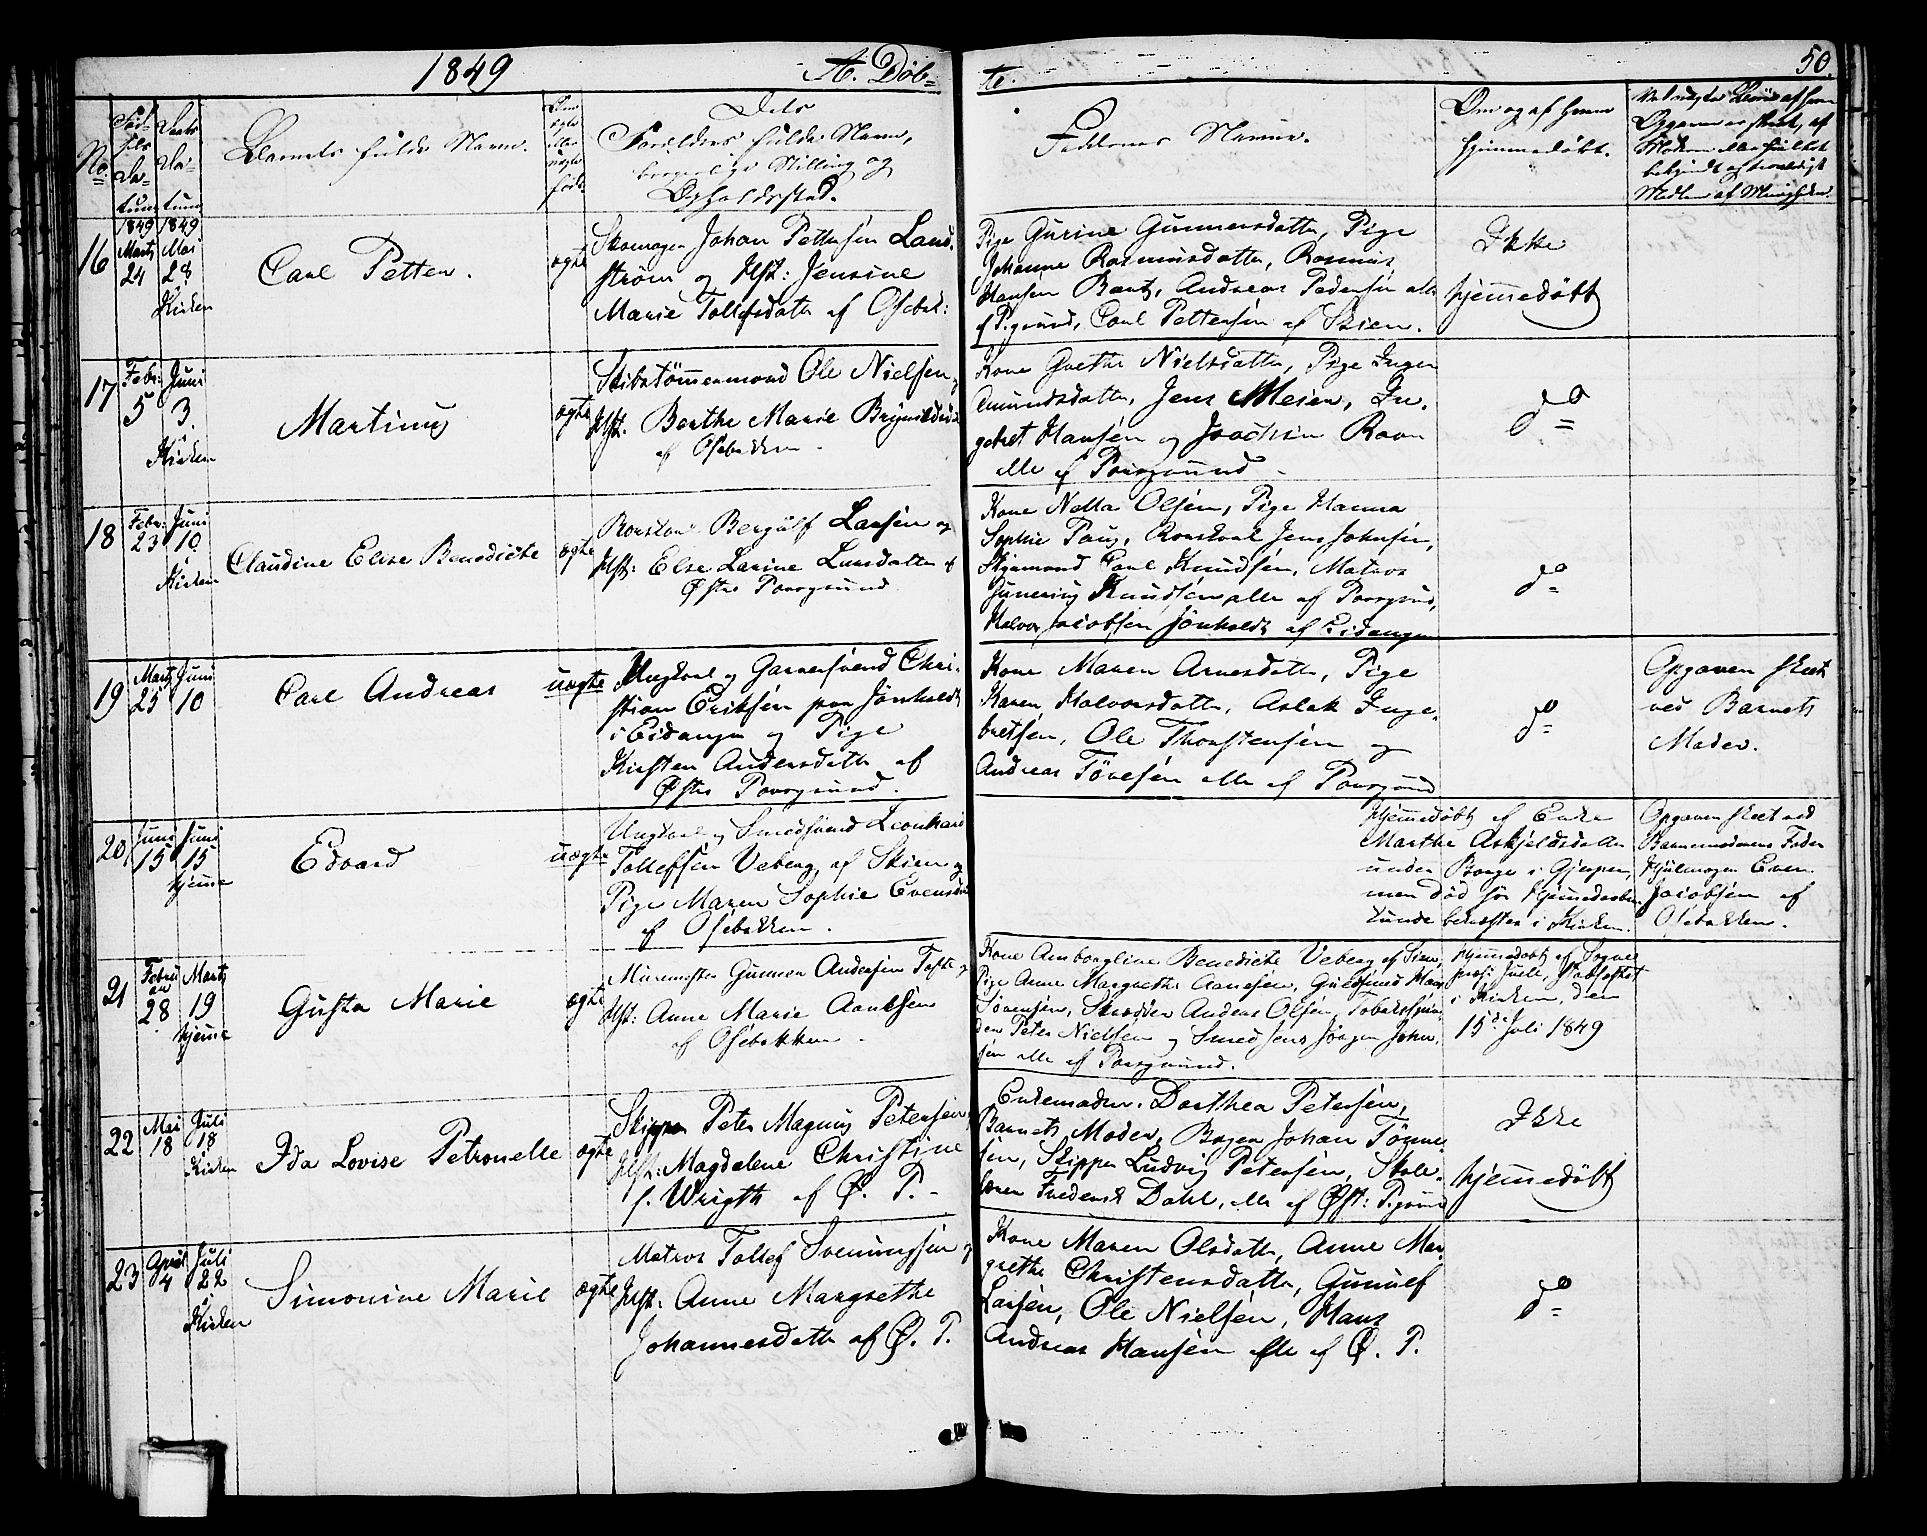 1849
A. Døb=
te.
50.
No
Fød-
sels
Da-
tum
Daabs
Da-
tum
Barnets fulde Navn.
Om
ægte
eller
uægte
født.
Dets
Forældres fulde Navn,
borgerlige Stilling og
Opholdssted.
Faddernes Navne.
Om og af hvem
hjemmedøbt.
16
1849
Marts
24
1849
Mai
28
Kirken
Carl Petter.
ægte
Skomager Johan Pettersen Land-
strøm og Hst: Jensine
Marie Tollefsdatter af Osebak:
Pige Gurine Gunnersdatter, Pige
Johanne Rasmusdatter, Rasmus
Hansen Bantz, Andreas Pedersen alle
af P.grund, Carl Pettersen af Skien.
Ikke
hjemmedøbt
17
Febr:
5
Juni
3.
Kirken
Martinus
ægte
Skibstømmermand Ole Nielsen,
Hst: Berthe Marie Brynildsd
af Osebakken.
Kone Grethe Nielsdatter, Pige Inger
Amundsdatter, Jens Meier, In-
gebret Hansen og Joachim Ravn
alle af Porsgrund
do
18
Febr:
23
Juni
10
Kirken
Claudine Elise Benedicte
ægte
Bergulf Larsen og
Hst: Else Larine Larsdatter af
Øster Porsgrund
Kone Nella Olsen, Pige Hanna
Sophie Jens Johnsen,
Carl Knudsen, Matros
Knudsen alle af Porsgrund,
Halvor Jacobsen Jønholdt af Eidanger
do
19
Marts
25
Juni
10
Carl Andreas
uægte
Ungkarl og Garversvend Chri-
stian Eriksen paa Jønholdt
i Eidanger og Pige
Kirsten Andersdatter af
Øster Porsgrund.
Kone Maren Arnesdatter, Pige
Karen Halvorsdatter, Aslak Inge-
bretsen, Ole Thorstensen og
Andreas Tøvesen alle af Porsgrund
do
Opgaven skeet
ved Barnets
Moder.
20
Juni
15
Juni
15
hjemme
Edvard
uægte
Ungkarl og Smedsvend Leonhard
Tollefsen Veberg af Skien og
Pige Maren Sophie Evensd
af Osebakken.
Hjemmedøbt af Enke
Marthe Askjeldsdatter
under Borge i Gjerpen,
men død før Hjemmedaaben
kunde bekræftes i Kirken.
Opgaven skeet ved
Barnemoderens Fader
Hjulmager Even
Jacobsen af
Osebakken.
21
Febru
ar
28
Marts
19
hjemme
Gusta Marie
ægte
Muurmester Gunner Andersen Tofte og
Hst: Anne Marie Aanesen
af Osebakken.
Kone Amborgline Benedicte Veberg af Skien,
Pige Anne Margrethe Aanesen, Guldsmed
Sørensen, Skrædder Anders Olsen, Tobakspin-
der Peter Nielsen og Smed Jens Jørgen John-
sen alle af Porsgrund.
Hjemmedøbt af Sogne-
præst, Stadfæstet
i Kirken, den
15de Juli 1849
22
Mai
18
Juli
18
Kirken
Ida Lovise Petronelle
ægte
Skipper Peter Magnus Petersen,
Hst: Magdalene Christine
f. Wrigth af Ø. P.
Enkemadm. Dorthea Petersen,
Barnets Moder, Bager Johan Tønne-
sen, Skipper Ludvig Petersen, Skole-
lærer Frederik Dahl, alle af Øst: P.grund
Ikke
hjemmedøbt
23
April
4
Juli
22
Kirken
Simonine Marie
ægte
Matros Tollef Svenningsen og
Hst: Anne Margrethe
Johannesdatter af Ø. P.
Kone Maren Olsdatter, Anne Mar-
grethe Christensdatter, Gunulf
Larsen, Ole Nielsen, Hans
Andreas Hansen alle af Ø. P.
do